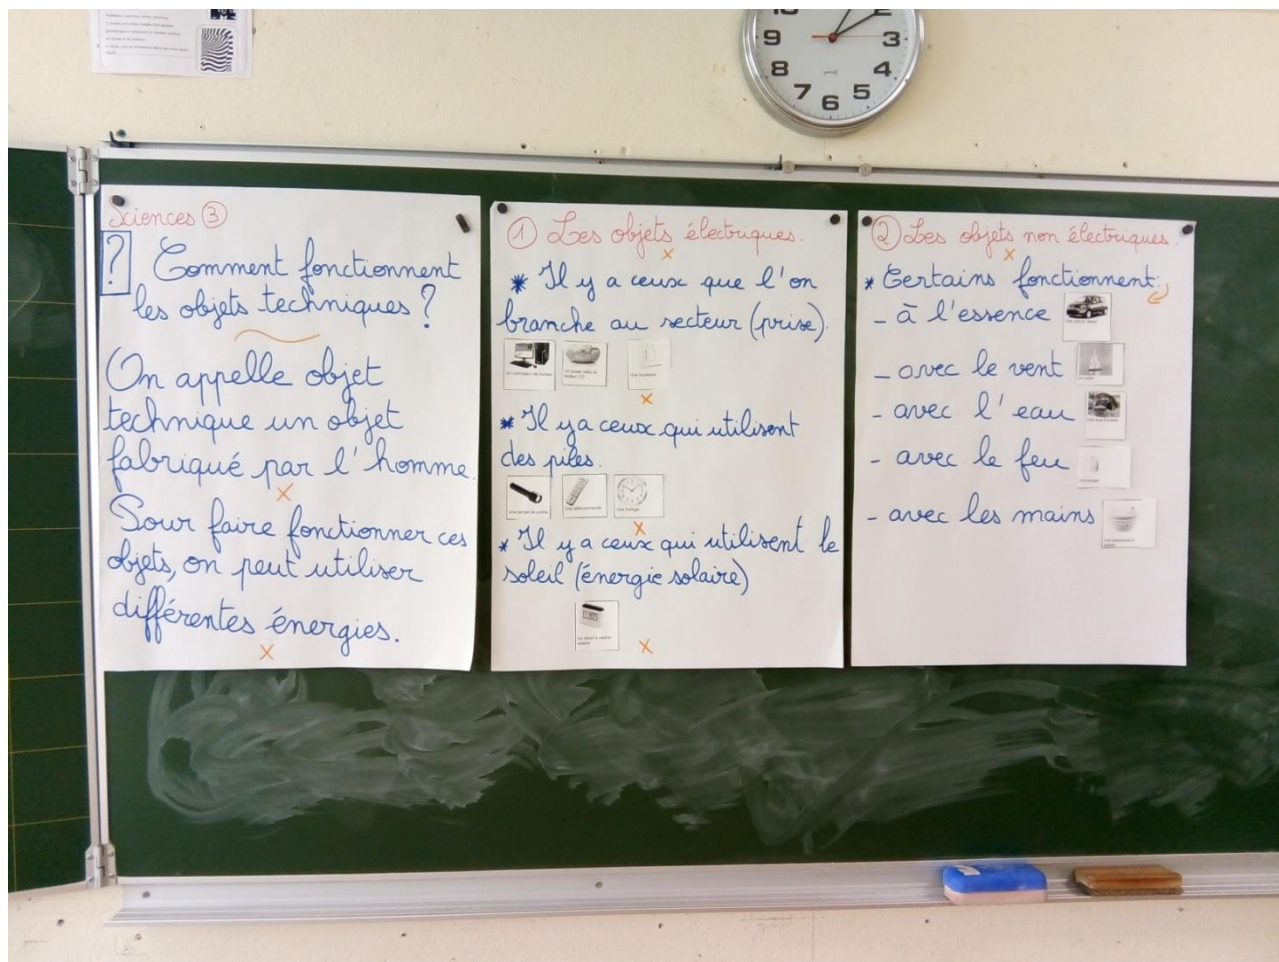 10
2
9
3
8
4
7
5
6
Sciences ③
? Comment fonctionnent
les objets techniques ?
On appelle objet
technique un objet
fabriqué par l'homme.
Pour faire fonctionner ces
objets, on peut utiliser
différentes énergies.
① Les objets électriques.
* Il y a ceux que l'on
branche au secteur (prise).
Un ordinateur de bureau
* Il y a ceux qui utilisent
des piles.
Une lampe de poche
Une télécommande
Une horloge
* Il y a ceux qui utilisent le
soleil (énergie solaire)
② Les objets non électriques.
* Certains fonctionnent :
- à l'essence
- avec le vent
- avec l'eau
- avec le feu
- avec les mains